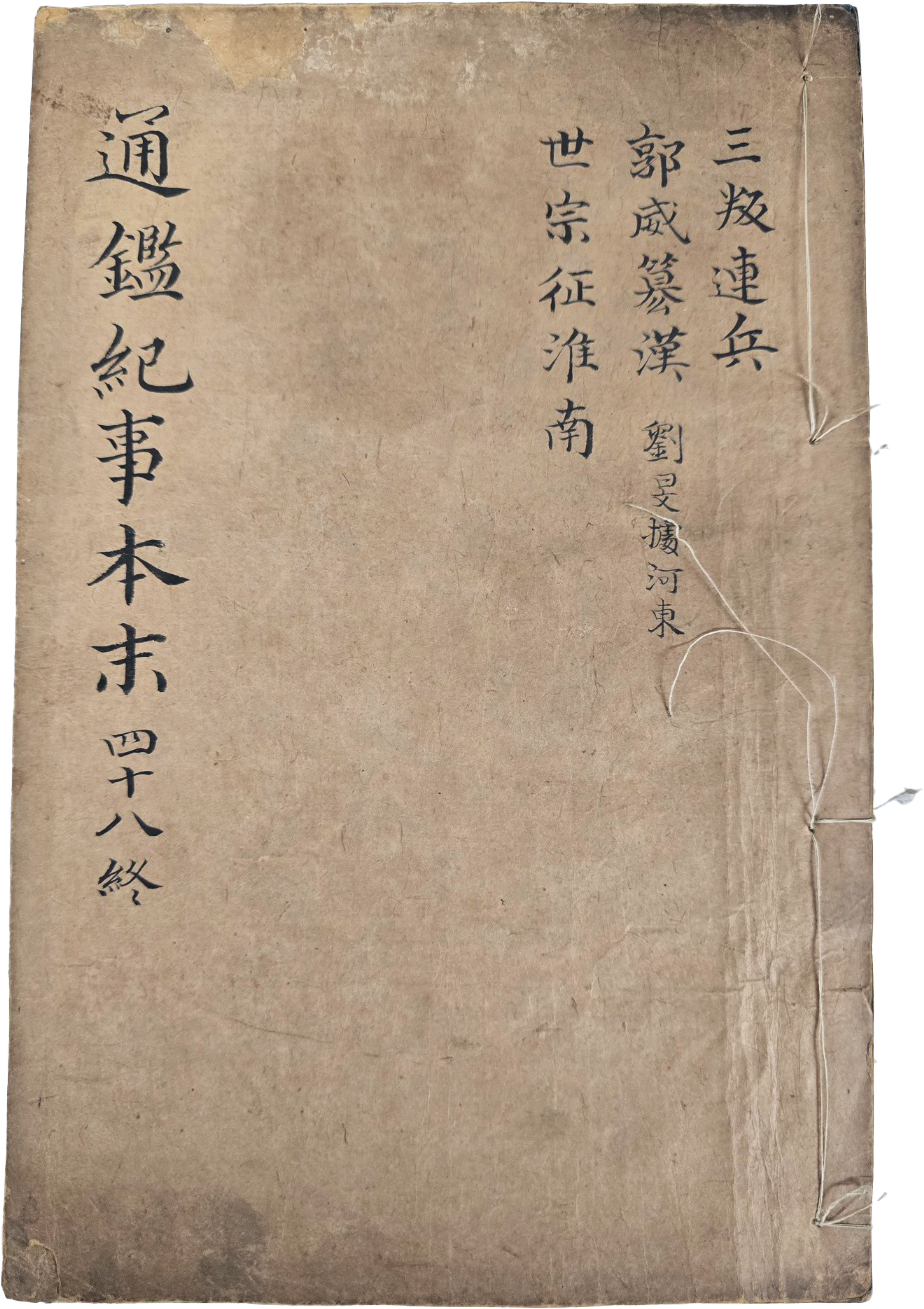 三叛連兵
郭威篡漢 劉旻據河東
世宗征淮南
通鑑紀事本末 四十八終